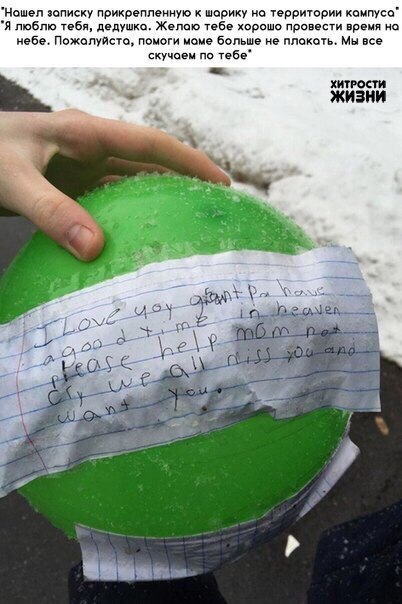 "Нашел записку прикрепленную к шарику на территории кампуса"
"Я люблю тебя, дедушка. Желаю тебе хорошо провести время на
небе. Пожалуйста, помоги маме больше не плакать. Мы все
скучаем по тебе"
ХИТРОСТИ
ЖИЗНИ
I Love you grantpa have
a good time in heaven
please help mom not
cry we all miss you and
want you.